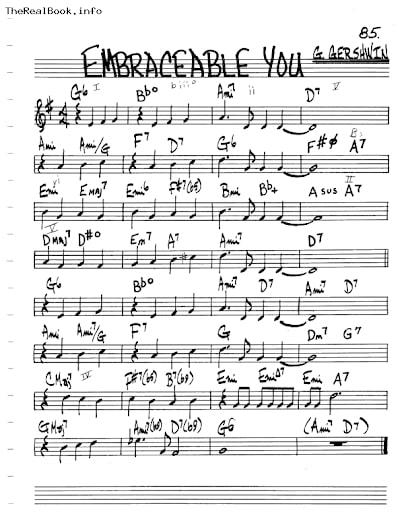 TheRealBook.info
85.
EMBRACEABLE YOU G. GERSHWIN
G6 I Bbo biiio Ami7 ii D7 V
Ami Ami/G F7 D7 G6 F#ø A7
Emi Emaj7 Emi6 F#7(b9) Bmi Bb+ Asus A7
Dmaj7 D#o Em7 A7 Ami7 D7
G6 Bbo Ami7 D7 Ami7 D7
Ami Ami7/G F7 G Dm7 G7
CMaj7 IV F#7(b5) B7(b9) Emi Emi∆7 Emi A7
GMaj7 Ami7(b5) D7(b9) G6 (Ami7 D7)